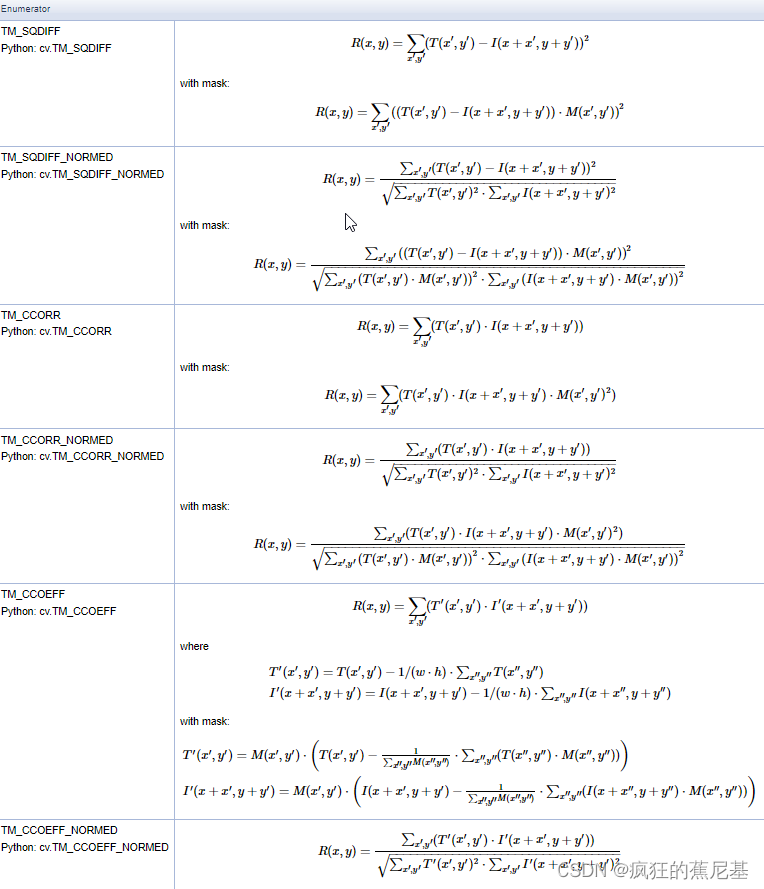 Enumerator
TM_SQDIFF
Python: cv.TM_SQDIFF
R(x, y) = ∑x′,y′ (T(x′, y′) − I(x + x′, y + y′))²
with mask:
R(x, y) = ∑x′,y′ ((T(x′, y′) − I(x + x′, y + y′)) · M(x′, y′))²
TM_SQDIFF_NORMED
Python: cv.TM_SQDIFF_NORMED
R(x, y) = ∑x′,y′ (T(x′, y′) − I(x + x′, y + y′))² / √(∑x′,y′ T(x′, y′)² · ∑x′,y′ I(x + x′, y + y′)²)
with mask:
R(x, y) = ∑x′,y′ ((T(x′, y′) − I(x + x′, y + y′)) · M(x′, y′))² / √(∑x′,y′ (T(x′, y′) · M(x′, y′))² · ∑x′,y′ (I(x + x′, y + y′) · M(x′, y′))²)
TM_CCORR
Python: cv.TM_CCORR
R(x, y) = ∑x′,y′ (T(x′, y′) · I(x + x′, y + y′))
with mask:
R(x, y) = ∑x′,y′ (T(x′, y′) · I(x + x′, y + y′) · M(x′, y′)²)
TM_CCORR_NORMED
Python: cv.TM_CCORR_NORMED
R(x, y) = ∑x′,y′ (T(x′, y′) · I(x + x′, y + y′)) / √(∑x′,y′ T(x′, y′)² · ∑x′,y′ I(x + x′, y + y′)²)
with mask:
R(x, y) = ∑x′,y′ (T(x′, y′) · I(x + x′, y + y′) · M(x′, y′)²) / √(∑x′,y′ (T(x′, y′) · M(x′, y′))² · ∑x′,y′ (I(x + x′, y + y′) · M(x′, y′))²)
TM_CCOEFF
Python: cv.TM_CCOEFF
R(x, y) = ∑x′,y′ (T′(x′, y′) · I′(x + x′, y + y′))
where
T′(x′, y′) = T(x′, y′) − 1/(w · h) · ∑x″,y″ T(x″, y″)
I′(x + x′, y + y′) = I(x + x′, y + y′) − 1/(w · h) · ∑x″,y″ I(x + x″, y + y″)
with mask:
T′(x′, y′) = M(x′, y′) · (T(x′, y′) − 1/∑x″,y″ M(x″,y″) · ∑x″,y″ (T(x″, y″) · M(x″, y″)))
I′(x + x′, y + y′) = M(x′, y′) · (I(x + x′, y + y′) − 1/∑x″,y″ M(x″,y″) · ∑x″,y″ (I(x + x″, y + y″) · M(x″, y″)))
TM_CCOEFF_NORMED
Python: cv.TM_CCOEFF_NORMED
R(x, y) = ∑x′,y′ (T′(x′, y′) · I′(x + x′, y + y′)) / √(∑x′,y′ T′(x′, y′)² · ∑x′,y′ I′(x + x′, y + y′)²)
CSDN @疯狂的蕉尼基